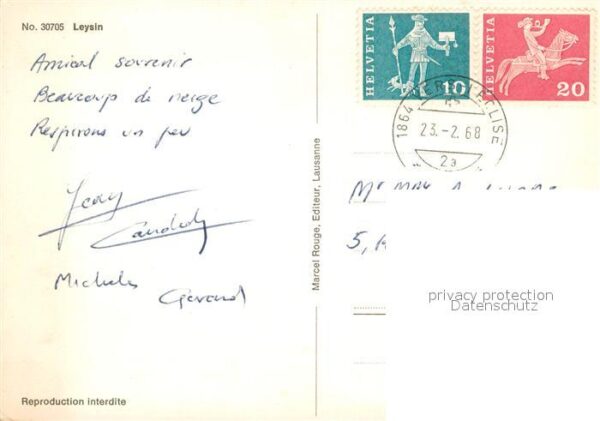 No. 30705 Leysin
Amical souvenir
Beaucoup de neige
Respirons un peu
Michele
Gérard
Reproduction interdite
Marcel Rouge, Editeur, Lausanne
HELVETIA 10
HELVETIA 20
1864
23.-2.68
2a
Mr
5,
privacy protection
Datenschutz